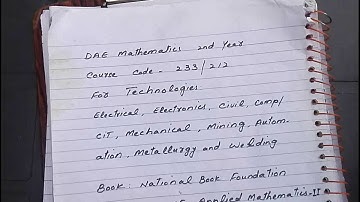 DAE Mathematics 2nd Year
Course Code - 233/212
For Technologies
Electrical, Electronics, Civil, Comp/
CIT, Mechanical, Mining, Autom-
ation, Metallurgy and Welding
Book: National Book Foundation
Applied Mathematics-II